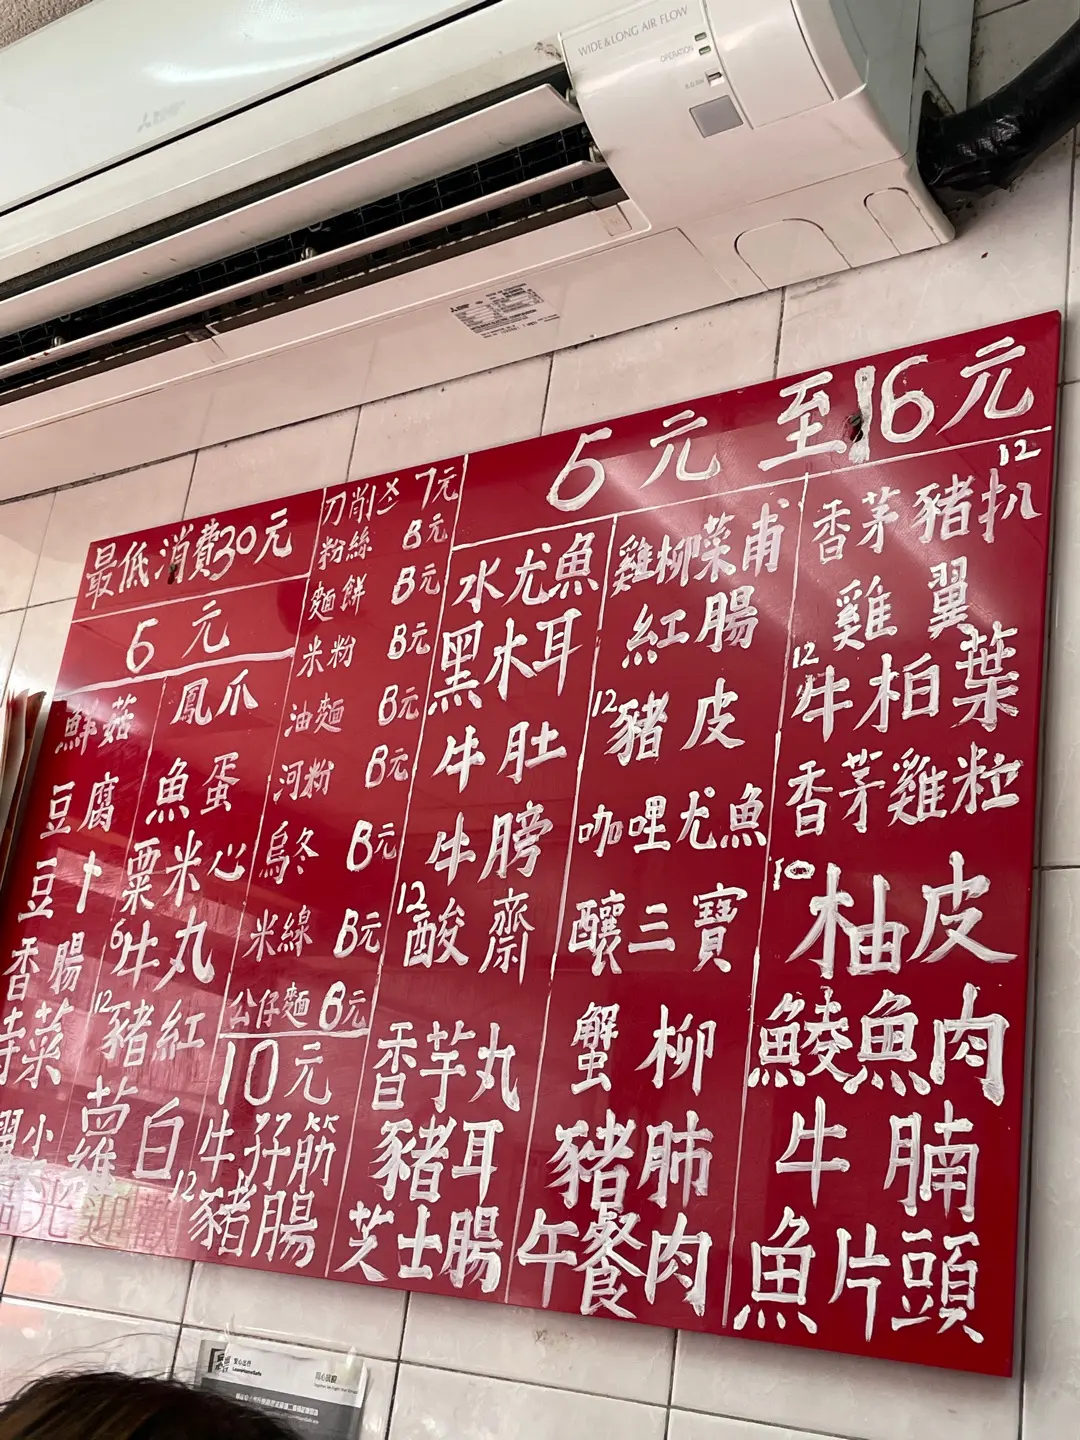 WIDE & LONG AIR FLOW
OPERATION
最低消費30元
6元
鮮菇
豆腐
豆卜
香腸
菜
小
鳳爪
魚蛋
粟米心
6牛丸
12豬紅
蘿白
刀削 7元
粉絲 8元
麵餅 8元
米粉 8元
油麵 8元
河粉 8元
烏冬 8元
米線 8元
公仔麵 8元
10元
牛孖筋
12豬腸
6元至16元
水尤魚
黑木耳
牛肚
牛膀
12酸齋
香芋丸
豬耳
芝士腸
雞柳菜甫
紅腸
12豬皮
咖哩尤魚
釀三寶
蟹柳
豬肺
午餐肉
12
香茅豬扒
雞翼
12牛柏葉
香茅雞粒
10柚皮
鯪魚肉
牛腩
魚片頭
光迎歡
安心出行
LeaveHomeSafe